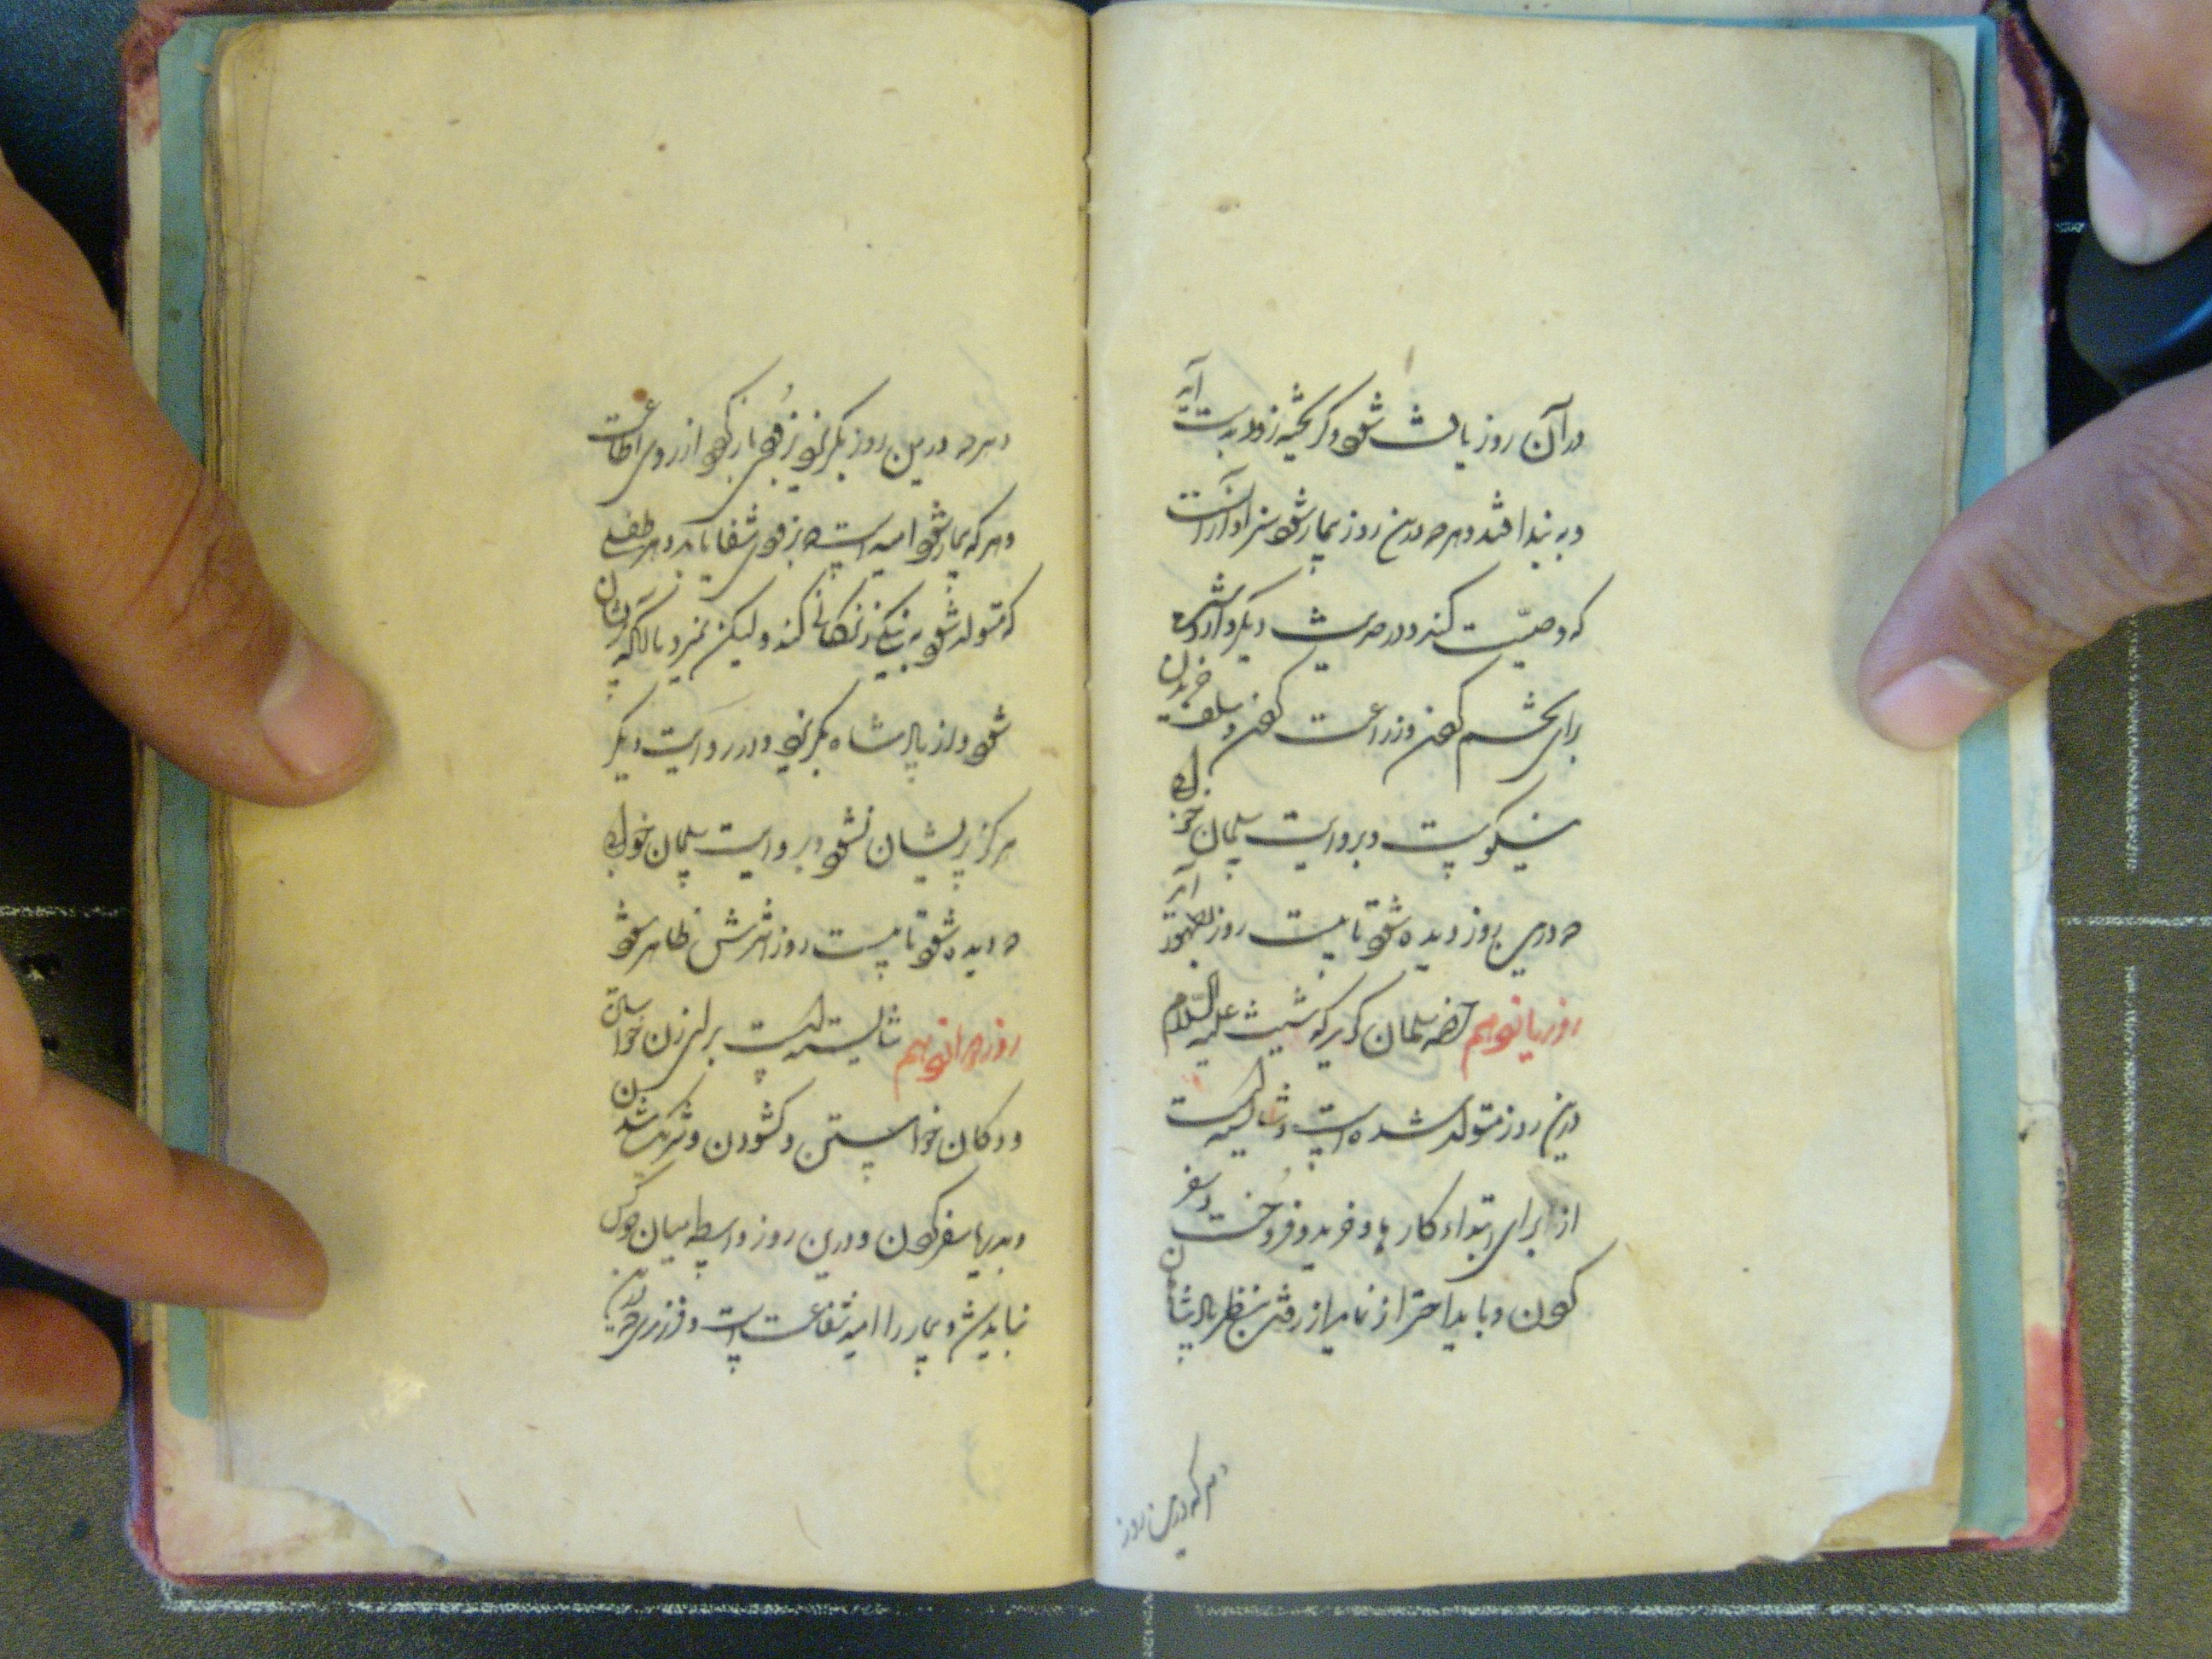 در آن روز یافت شود و گریخته زود بدست آید
و به بند افتد و هر که درین روز بیمار شود سزاوار آنست
که وصیّت کند و در حدیث دیگر وارد است
برای تخم کردن و زراعت کردن و سلف خریدن
نیکوست و بروایت سلمان خوابی
که درین روز دیده شود تا بیست روز بظهور آید
روز یازدهم حضرت سلمان گوید که شیث علیه السّلام
درین روز متولد شده است و شایسته است
از برای ابتداء کارها و خرید و فروخت و سفر
کردن و باید احتراز نماید از رفتن بنظر پادشاهان
هر که درین روز
و هر که درین روز بگریزد بزودی بازگردد از روی اطاعت
و هر که بیمار شود امید است که بزودی شفا یابد و هر طفلی
که متولد شود به نیکی زندگانی کند و لیکن نمیرد تا آنکه پریشان
شود و از پادشاه بگریزد و در روایت دیگر
هرگز پریشان نشود و بروایت سلمان خوابی
که دیده شود تا بیست روز اثرش ظاهر شود
روز دوازدهم شایسته است برای زن خواستن
و دکان خواستن و گشودن و شریک شدن
و بدریا سفر کردن و درین روز واسطه میان دو کس
نباید شد و بیمار را امید شفاعت است و فرزندی که درین